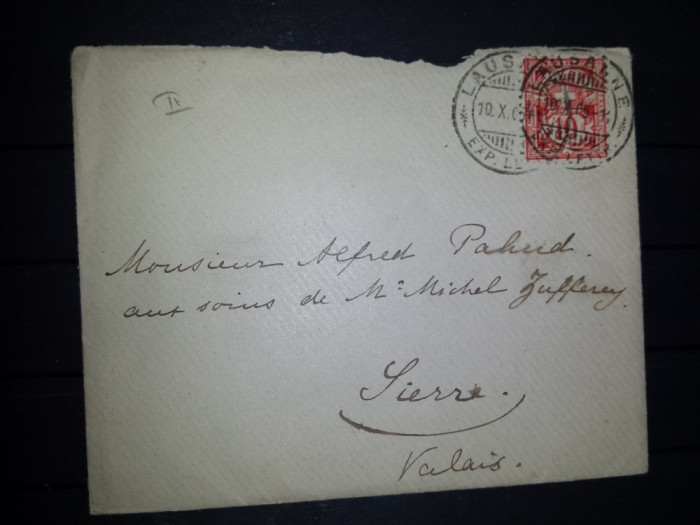 LAUSANNE
10. X.
EXP. LETTR.
10
II
Monsieur Alfred Pahud.
aux soins de Mr. Michel Zufferey.
Sierre.
Valais.